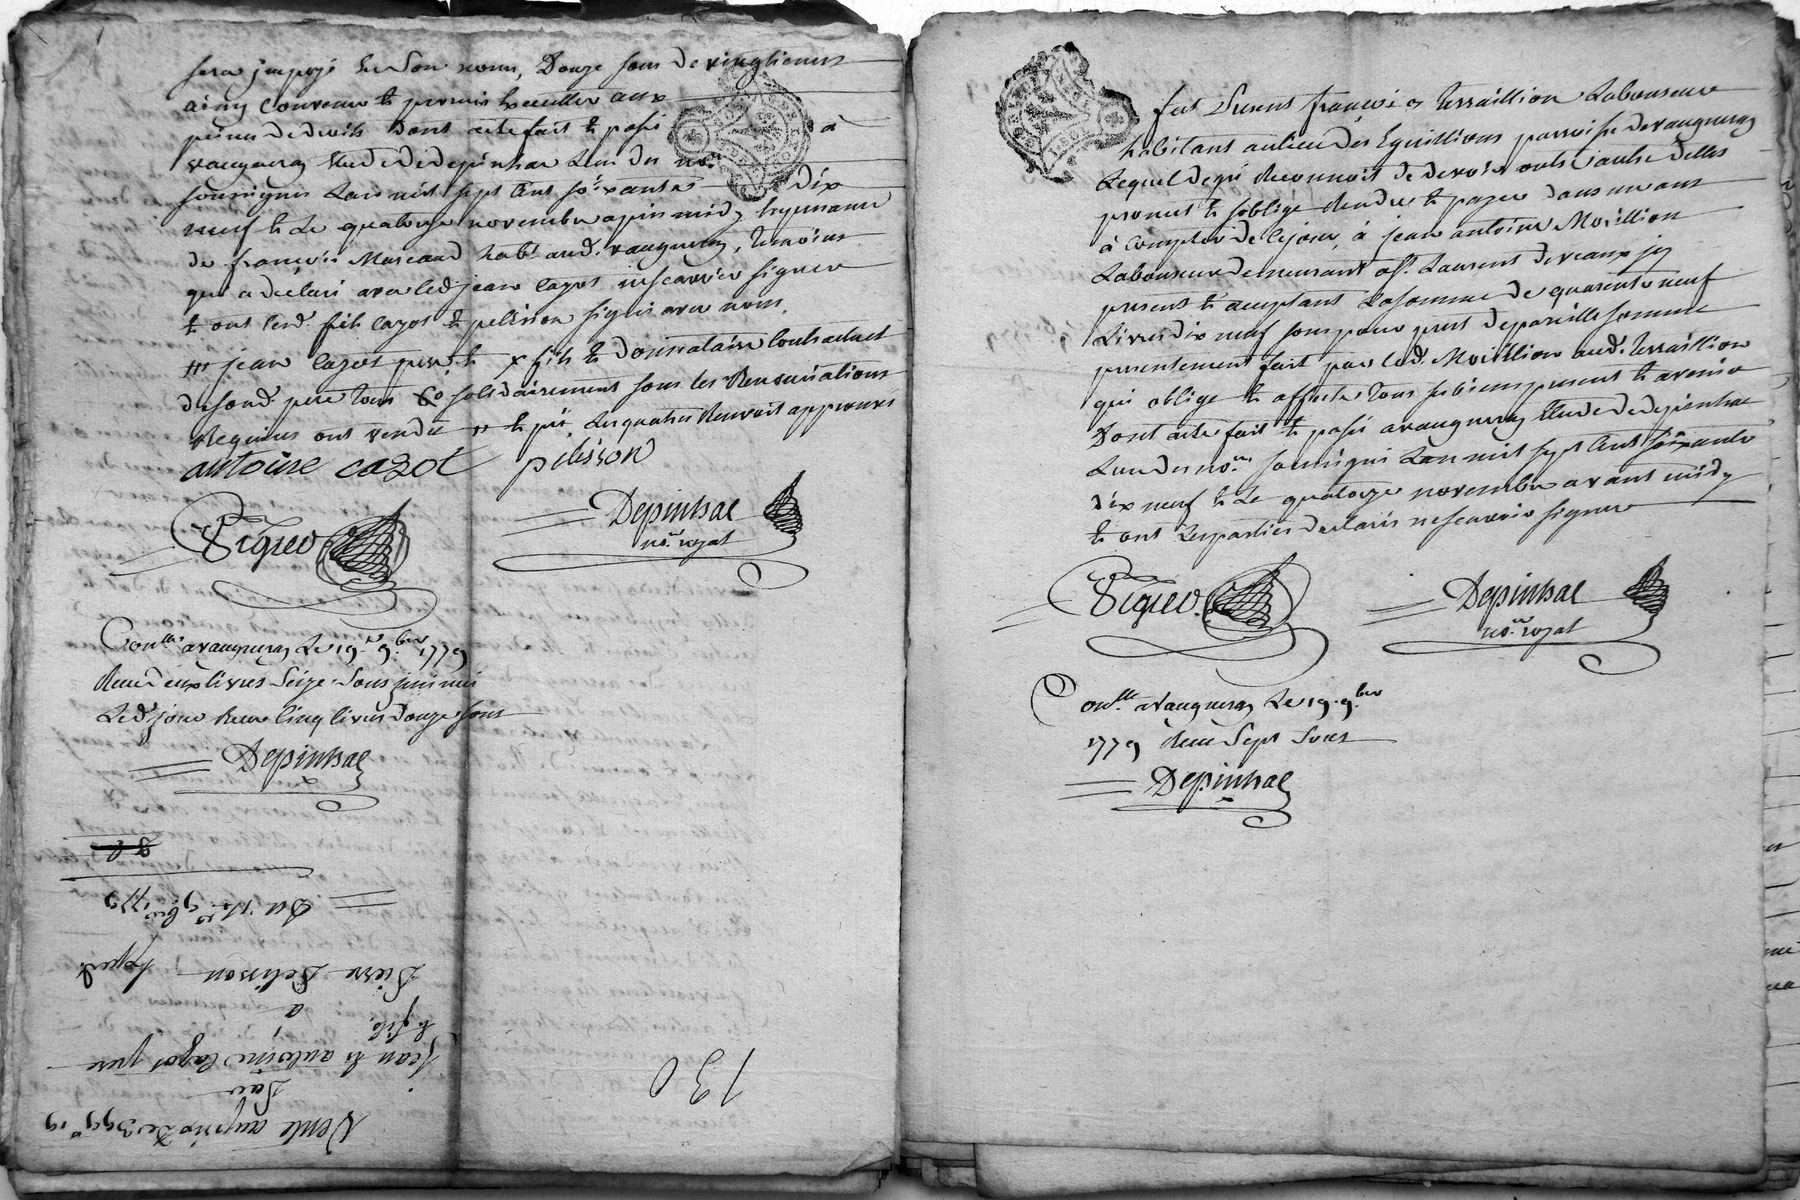 sera imposé En Son nom, Douze sous de vingtiemes
ainsy Convenu Et promis Executter aux
peines de droits Dont acte fait Et passé à
vaugneray Etude de depinhac L'un des no.res
soussignés L'an mil sept Cent soixante dix
neuf Et Le quatorze novembre apres midy En presence
de françois Marcaud hab.t aud. vaugneray, temoins
qui a declaré avec led. jean Cazot ne scavoir signer
Et ont Lesd. fils Cazot Et pelisson signé avec nous.
jean Cazot pere, Et x fils Et Donnataire Contractuel
de sond. pere tous Co solidairement sous les Renonciations
Requises ont vendu Et pré, Les quatre Renvois approuvés
antoine cazot pelisson
Depinhac
no.re royal
Con.llé a vaugneray Le 19.e 9.bre 1779
Reçu deux livres Seize Sous
Led. jour Reçu Cinq livres Douze sous
Depinhac
Vente au prix de 399# 19
Par
jean Et antoine Cazot pere
Et fils
a
Pierre Pelisson
Exped.
Du 14.e 9.bre 1779
130
fut Present françois terraillion Laboureur
habitant au lieu des Eguillions parroisse de vaugneray
Lequel de gré Reconnoit de devoir outre autre dettes
promet Et s'oblige Rendre Et payer dans un ans
à Compter de Ce jour, à jean antoine Moüllion
Laboureur demeurant a S.t Laurent de vaux jcy
present Et acceptant La somme de quarente neuf
Livres dix neuf sous pour prest de pareille somme
presentement fait par led. Moüllion aud. terraillion
qui oblige Et affecte tous ses biens present Et avenir
Dont acte fait Et passé a vaugneray Etude de depinhac
L'un des no.res soussignés L'an mil sept Cent soixante
dix neuf Et Le quatorze novembre avant midy
Et ont Les parties declaré ne scavoir signer
Depinhac
no.re royal
Con.llé a vaugneray Le 19. 9.bre
1779 Reçu Sept Sous
Depinhac